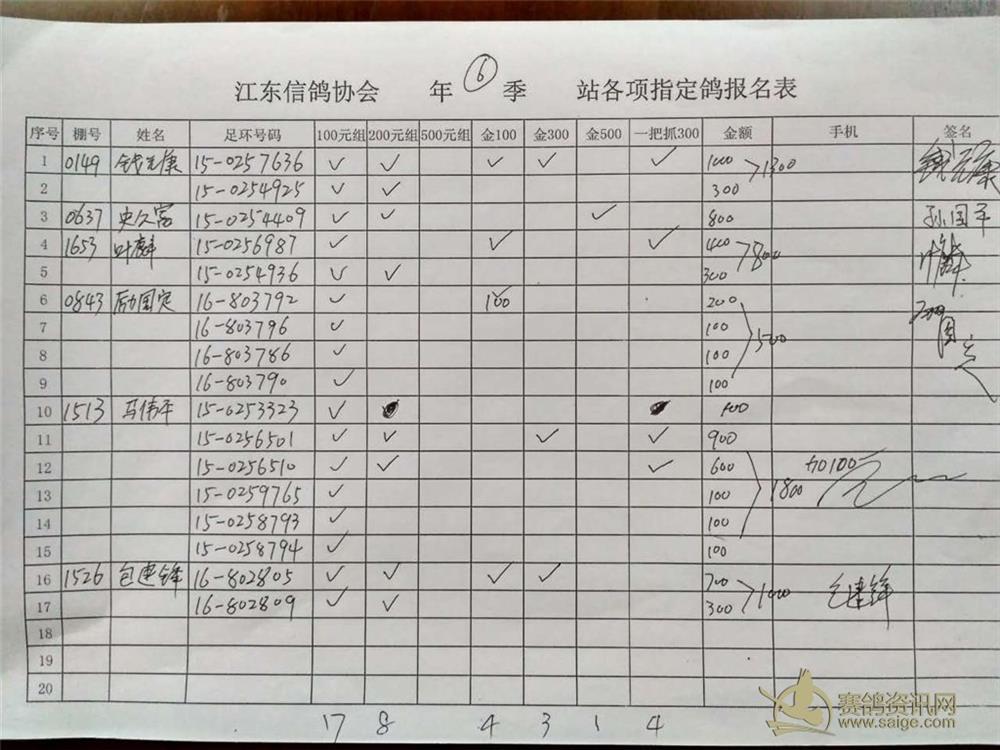 江东信鸽协会 年 6 季 站各项指定鸽报名表
序号 棚号 姓名 足环号码 100元组 200元组 500元组 金100 金300 金500 一把抓300 金额 手机 签名
1 0149 钱志康 15-0257636 ✓ ✓ ✓ ✓ ✓ 1000 >1300
2 15-0254925 ✓ ✓ 300
3 0637 史久富 15-0254409 ✓ ✓ ✓ 800 孙国平
4 1653 叶麟 15-0256987 ✓ ✓ ✓ 400 >800 叶麟
5 15-0254936 ✓ ✓ 300
6 0843 励国定 16-803792 ✓ 100 200 500
7 16-803796 ✓ 100
8 16-803786 ✓ 100
9 16-803790 ✓ 100
10 1513 马伟平 15-0253323 ✓
11 15-0256501 ✓ ✓ ✓ ✓ 900
12 15-0256510 ✓ ✓ ✓ 600 1800 加100元
13 15-0259765 ✓ 100
14 15-0258793 ✓ 100
15 15-0258794 ✓ 100
16 1526 包建锋 16-802805 ✓ ✓ ✓ ✓ 700 >1000 包建锋
17 16-802809 ✓ ✓ 300
18
19
20
17 8 4 3 1 4
赛鸽资讯网
www.saige.com